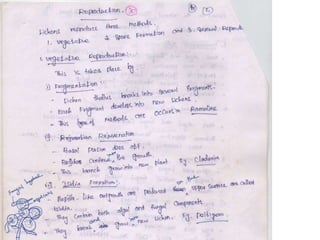 Reproduction.
Lichens reproduce three methods.
1. vegetative 2. Spore Formation and 3. Sexual Reprodu
1. vegetative Reproduction:-
This is takes place by
i) Fragmentation:
- Lichen thallus breaks into several fragments.
- Each Fragment develops into New Lichens.
- This type of Methods are occurs in Ramalina
Rejuvenation
- Basal Portion dies off.
- Continue the growth.
- This branch grow into new plant. Eg. Cladonia
Isidia Formation:
- like outgrowths are produced upper surface are called Isidia.
- They contain both algal and fungal Components.
- They break grow new lichen. Eg. Peltigera
Fungal hyphae